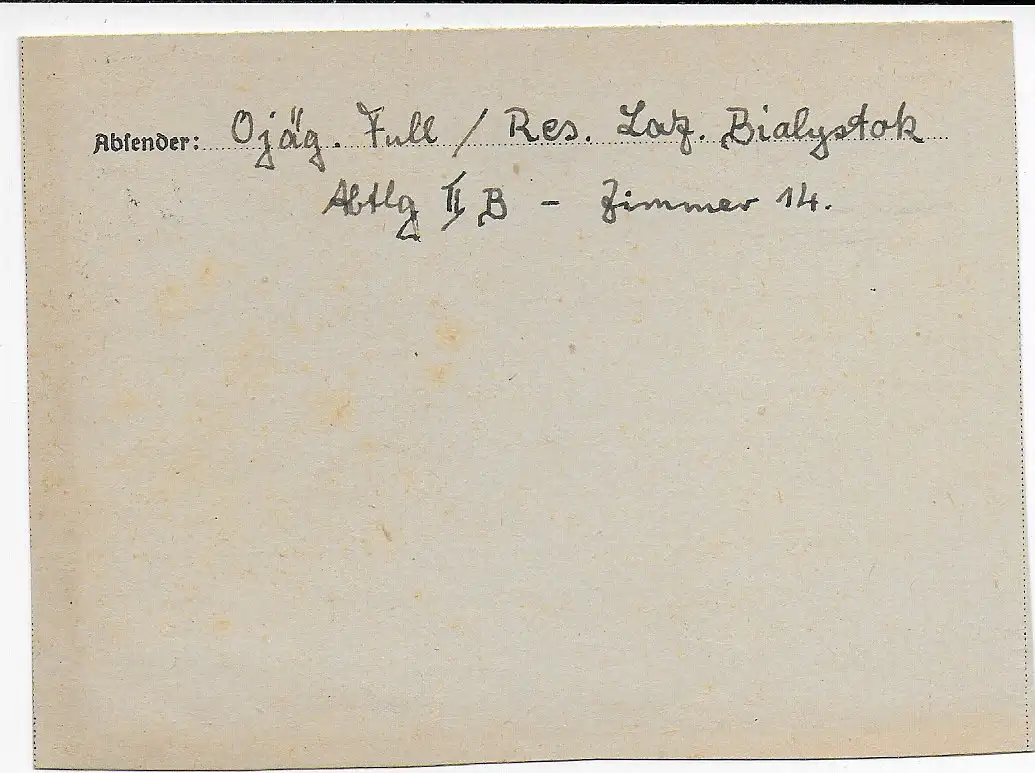 Absender: Ojäg. Full / Res. Laz. Bialystok
Abtlg II B - Zimmer 14.